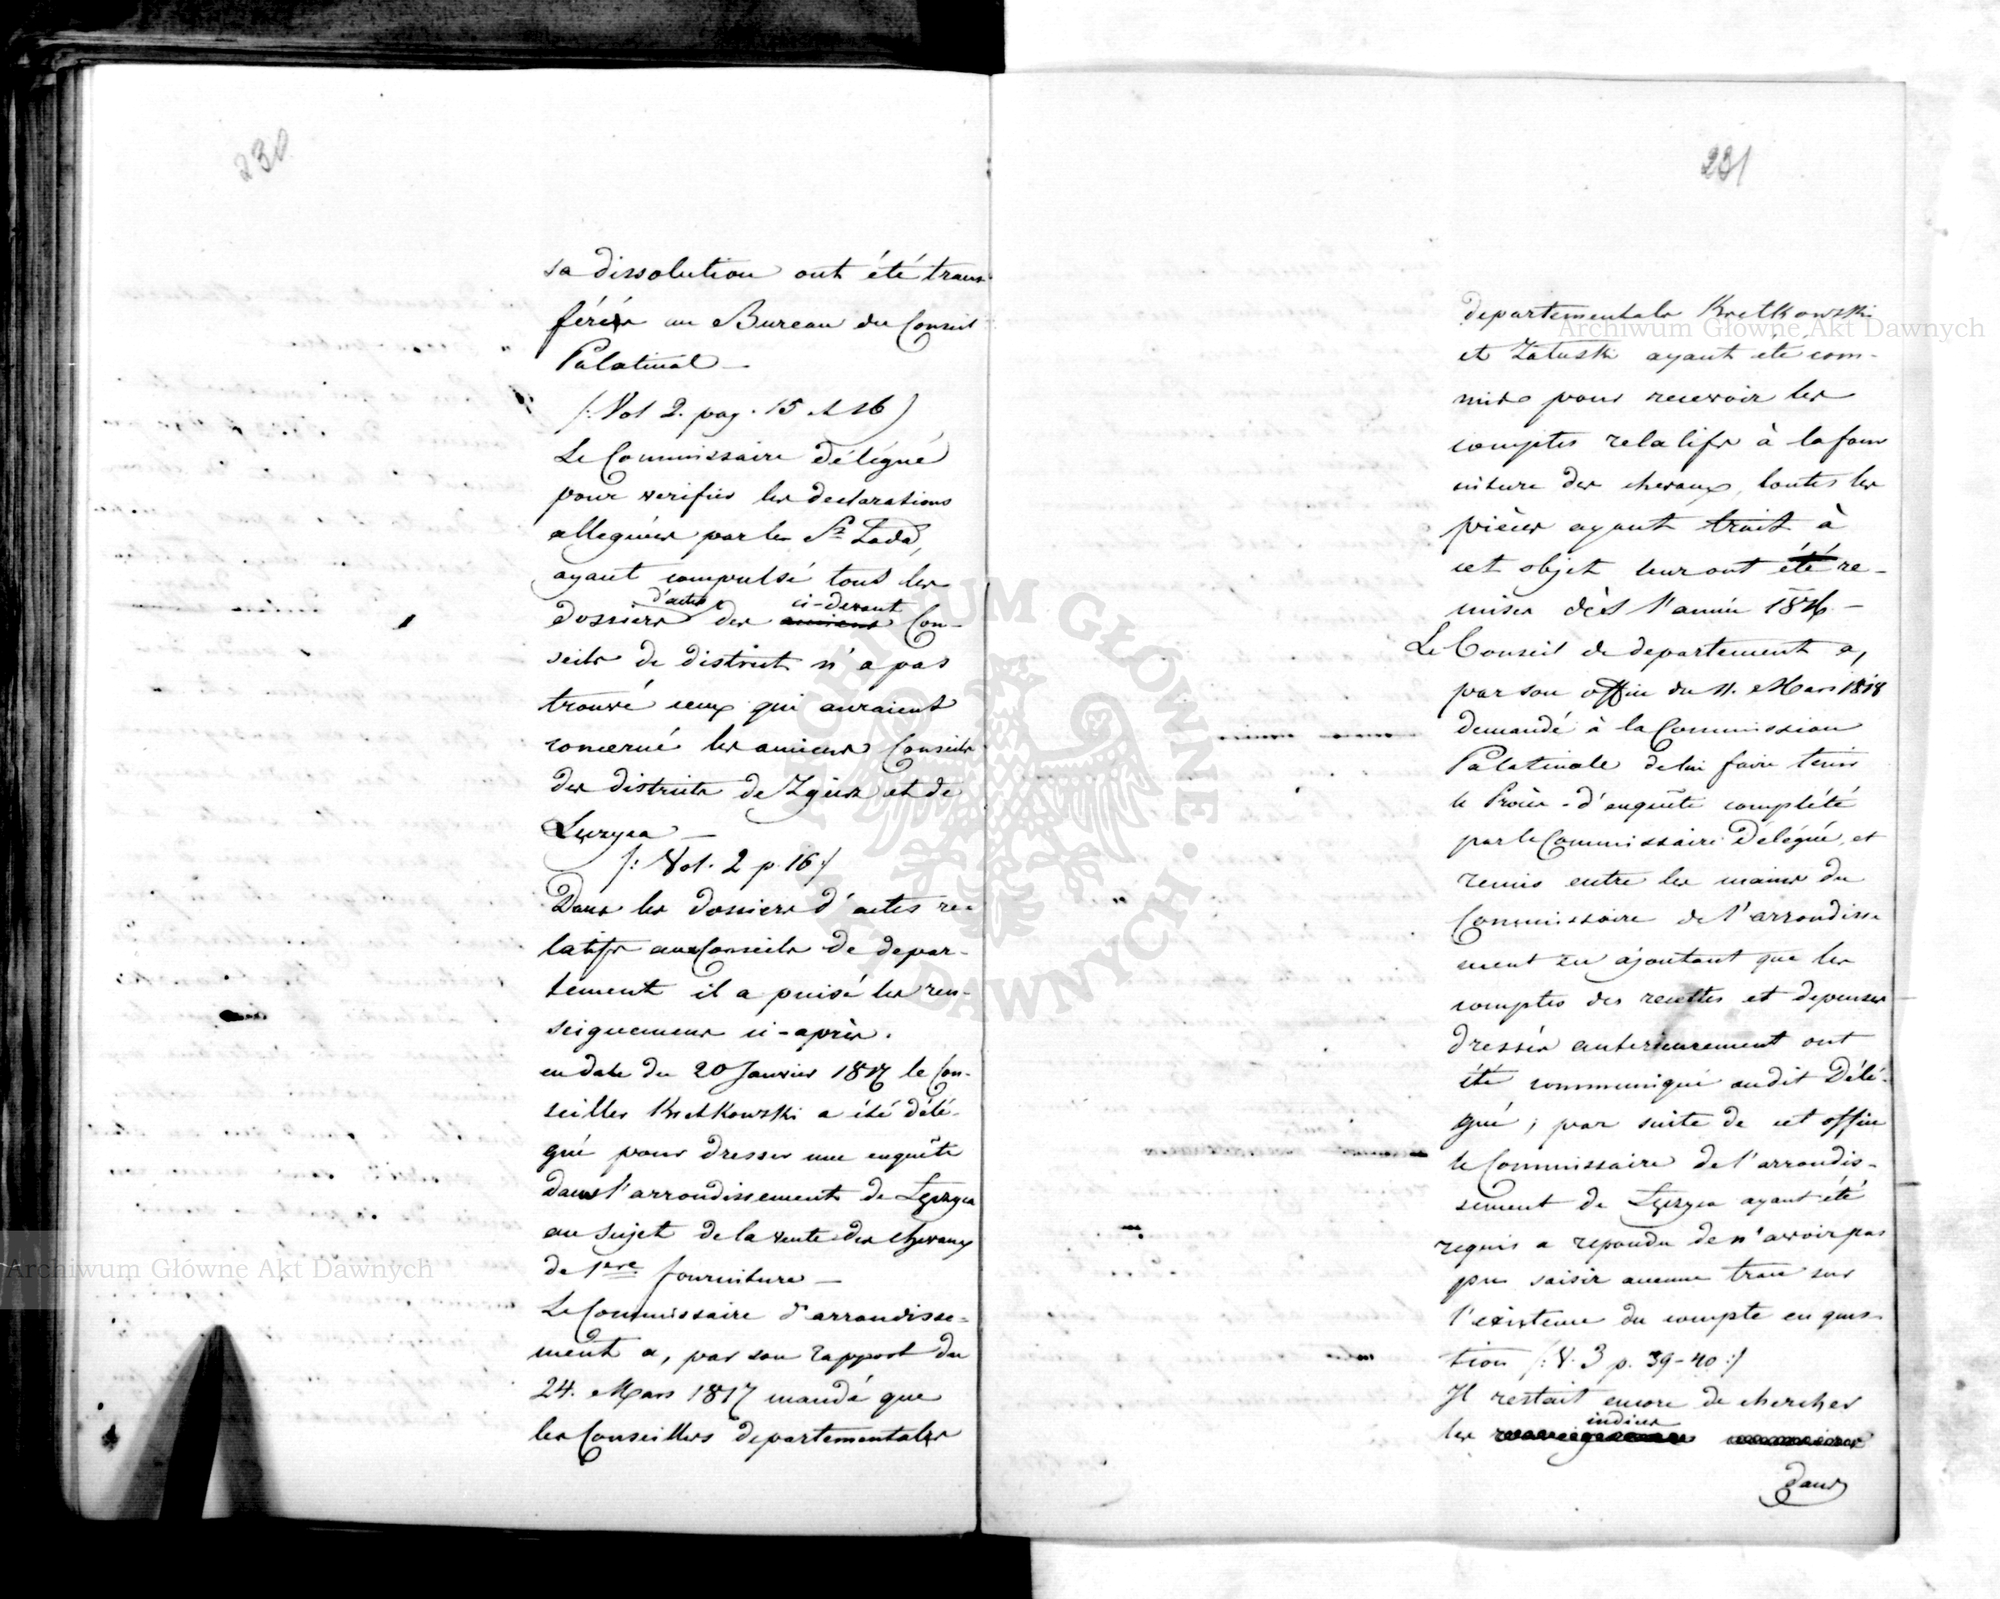 230
sa dissolution ont été trans
férés au Bureau du Conseil
Palatinal –
/: Vol 2. pag. 15 et 16 /
Le Commissaire délégué
pour verifier les declarations
alleguées par les Sr Zada,
ayant compulsé tous les
d'actes ci-devant
dossiers des anciens Con-
seils de district n'a pas
trouvé ceux qui auraient
concerné les anciens Conseils
des districts de Zgierz et de
Łęczyca –
/: Vol. 2 p. 16 :/
Dans les dossiers d'actes re-
latifs aux Conseils de depar-
tement il a puisé les ren-
seignemens ci-après.
en date du 20 Janvier 1817 le Con-
seiller Kretkowski a été délé-
gué pour dresser une enquête
dans l'arrondissement de Łęczyca
au sujet de la vente des chevaux
de 1ère fourniture –
Le Commissaire d'arrondisse-
ment a, par son rapport du
24. Mars 1817 mandé que
les Conseillers departementales
231
departementals Kretkowski
et Załuski ayant été com-
mis pour recevoir les
comptes relatifs à la four
niture des chevaux, toutes les
pièces ayant trait à
cet objet leur ont été re-
mises dès l'année 1816 –
Le Conseil de departement a,
par son office du 11. Mars 1818
demandé à la Commission
Palatinale de lui faire tenir
le Procès-d'enquête complété
par le Commissaire Délégué, et
remis entre les mains du
Commissaire de l'arrondisse
ment en ajoutant que les
comptes des recettes et depenses
dressés anterieurement ont
été communiqué audit Délé-
gué; par suite de cet office
le Commissaire de l'arrondis-
sement de Łęczyca ayant été
requis a repondu de n'avoir pas
pu saisir aucune trace sur
l'existence du compte en ques-
tion /: V. 3 p. 39-40 :/
Il restait encore de chercher
indices
les
dans
Archiwum Główne Akt Dawnych
Archiwum Główne Akt Dawnych
ARCHIWUM GŁÓWNE · AKT DAWNYCH ·